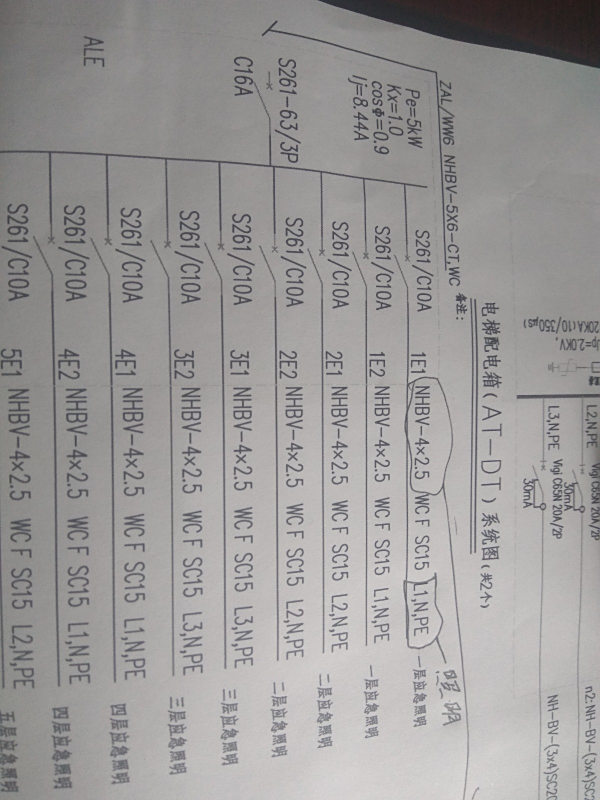 20KA(10/350μs)
Up=2.0KV,
L2,N,PE Vigi C65N 20A/2P
30mA
n2:NH-BV-(3x4)SC2
L3,N,PE Vigi C65N 20A/2P
30mA
NH-BV-(3x4)SC20
电梯配电箱(AT-DT)系统图(共2个)
备注:
ZAL/WW6 NHBV-5X6-CT,WC
Pe=5kW
Kx=1.0
cosΦ=0.9
Ij=8.44A
S261-63/3P
C16A
ALE
S261/C10A 1E1 NHBV-4×2.5 WC F SC15 L1,N,PE 一层应急照明
S261/C10A 1E2 NHBV-4×2.5 WC F SC15 L1,N,PE 一层应急照明
S261/C10A 2E1 NHBV-4×2.5 WC F SC15 L2,N,PE 二层应急照明
S261/C10A 2E2 NHBV-4×2.5 WC F SC15 L2,N,PE 二层应急照明
S261/C10A 3E1 NHBV-4×2.5 WC F SC15 L3,N,PE 三层应急照明
S261/C10A 3E2 NHBV-4×2.5 WC F SC15 L3,N,PE 三层应急照明
S261/C10A 4E1 NHBV-4×2.5 WC F SC15 L1,N,PE 四层应急照明
S261/C10A 4E2 NHBV-4×2.5 WC F SC15 L1,N,PE 四层应急照明
S261/C10A 5E1 NHBV-4×2.5 WC F SC15 L2,N,PE 五层应急照明